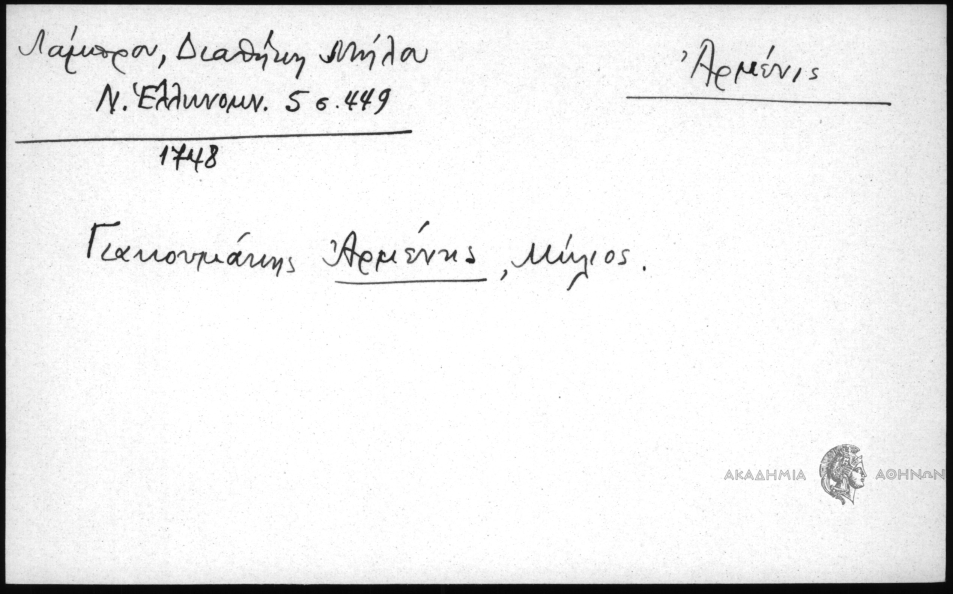 Λάμπρου, Διαθήκη Μήλου
Ν. Ἑλληνομν. 5 σ. 449
1748
Ἀρμένις
Γιακουμάκης Ἀρμένης, Μήλιος.
ΑΚΑΔΗΜΙΑ ΑΘΗΝΩΝ